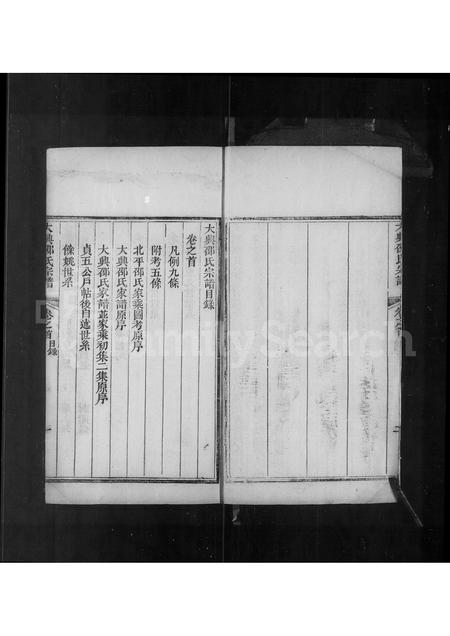 大興邵氏宗譜
卷之首
二
大興邵氏宗譜目錄
卷之首
凡例九條
附考五條
北平邵氏家乘圖考原序
大興邵氏家譜原序
大興邵氏家譜並家乘初集二集原序
貞五公戶帖後自述世系
餘姚世系
大興邵氏宗譜
卷之首目錄
FamilySearch